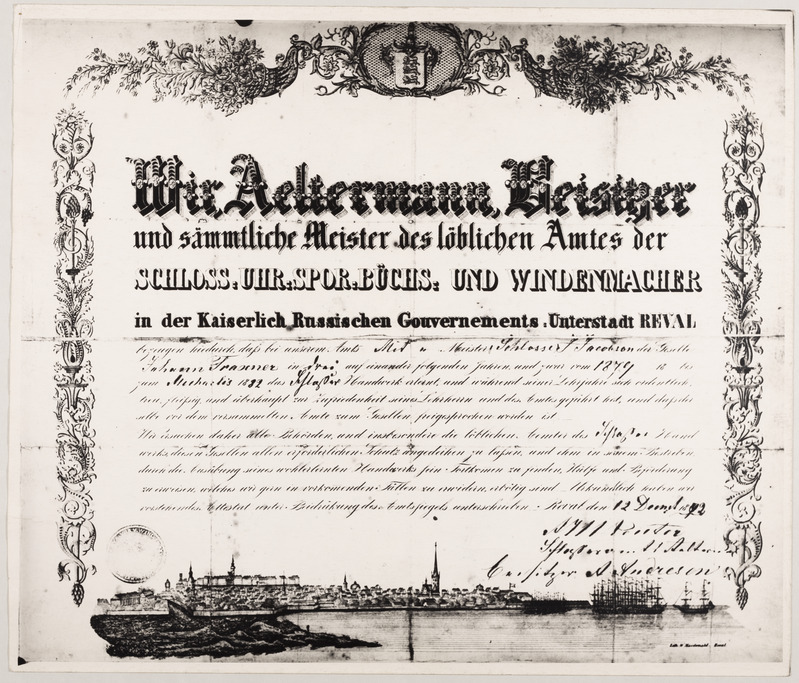 Wir, Aeltermann, Beisitzer
und sämmtliche Meister des löblichen Amtes der
SCHLOSS-UHR-SPOR-BÜCHS- UND WINDENMACHER
in der Kaiserlich Russischen Gouvernements-Unterstadt REVAL
bezeugen hiedurch, daß bei unserm Amts Mit u Meister Schlosser J Jacobson der Geselle
Johann in drei auf einander folgenden Jahren, und zwar vom 1879 bis
zum Michaelis 1882 das Schlosser Handwerk erlernt, und während seiner Lehrjahre sich ordentlich,
treu, fleissig und überhaupt zur Zufriedenheit seines Lehrherrn und des Amtes geführt hat, und daß der
selbe vor dem versammelten Amte zum Gesellen freigesprochen worden ist
Wir ersuchen daher alle Behörden, und insbesondere die löblichen Aemter des Schlosser Hand
werks, diesen Gesellen allen erforderlichen Schutz angedeihen zu lassen, und ihm in seinem Bestreben
durch die Ausübung seines wohlerlernten Handwerks sein Fortkomen zu finden, Hülfe und Beförderung
zu erweisen, welches wir gern in vorkomenden Fällen zu erwidern erbötig sind. Urkundlich haben wir
vorstehendes Attestat unter Beidrückung des Amtssiegels unterschrieben. Reval den 12 Decembr
Beisitzer A. Andresen